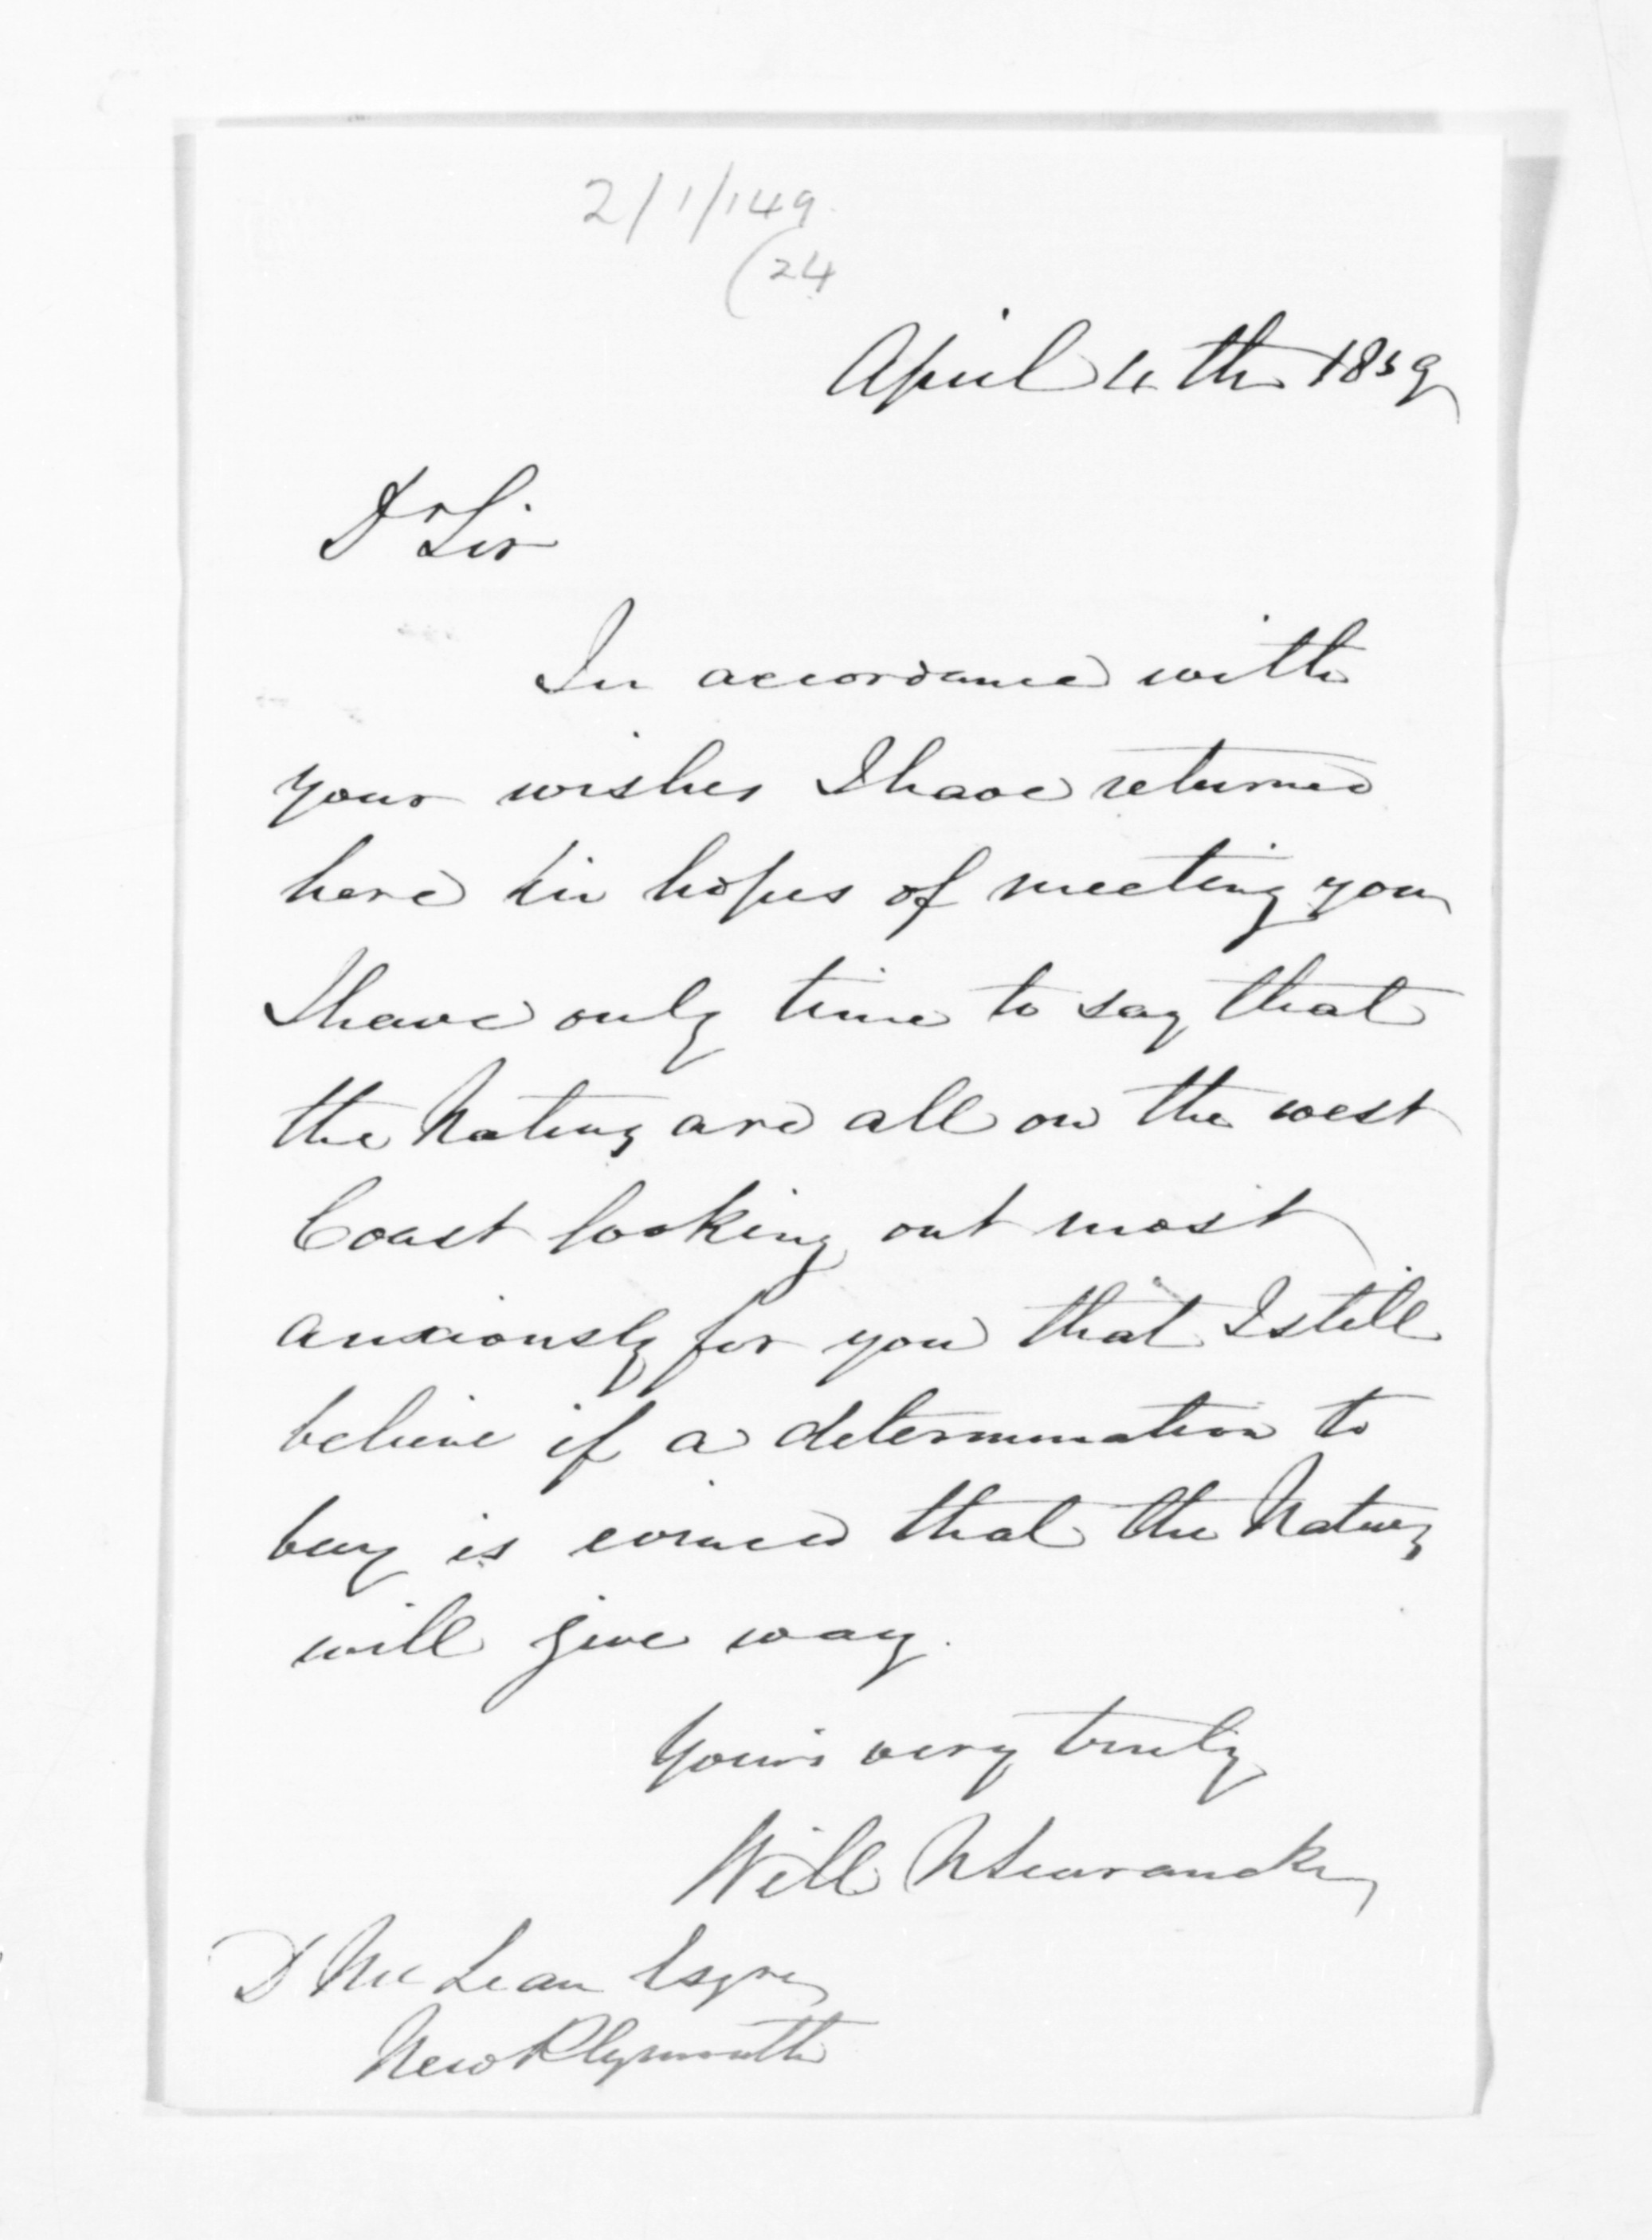 2/1/149.
(24
April 4th 1859
Dr Sir
In accordance with
your wishes I have returned
here in hopes of meeting you
I have only time to say that
the Natives are all on the west
Coast looking out most
anxiously for you that I still
believe if a determination to
buy is evinced that the Natives
will give way.
Yours very truly
Will
D McLean Esqre
New Plymouth